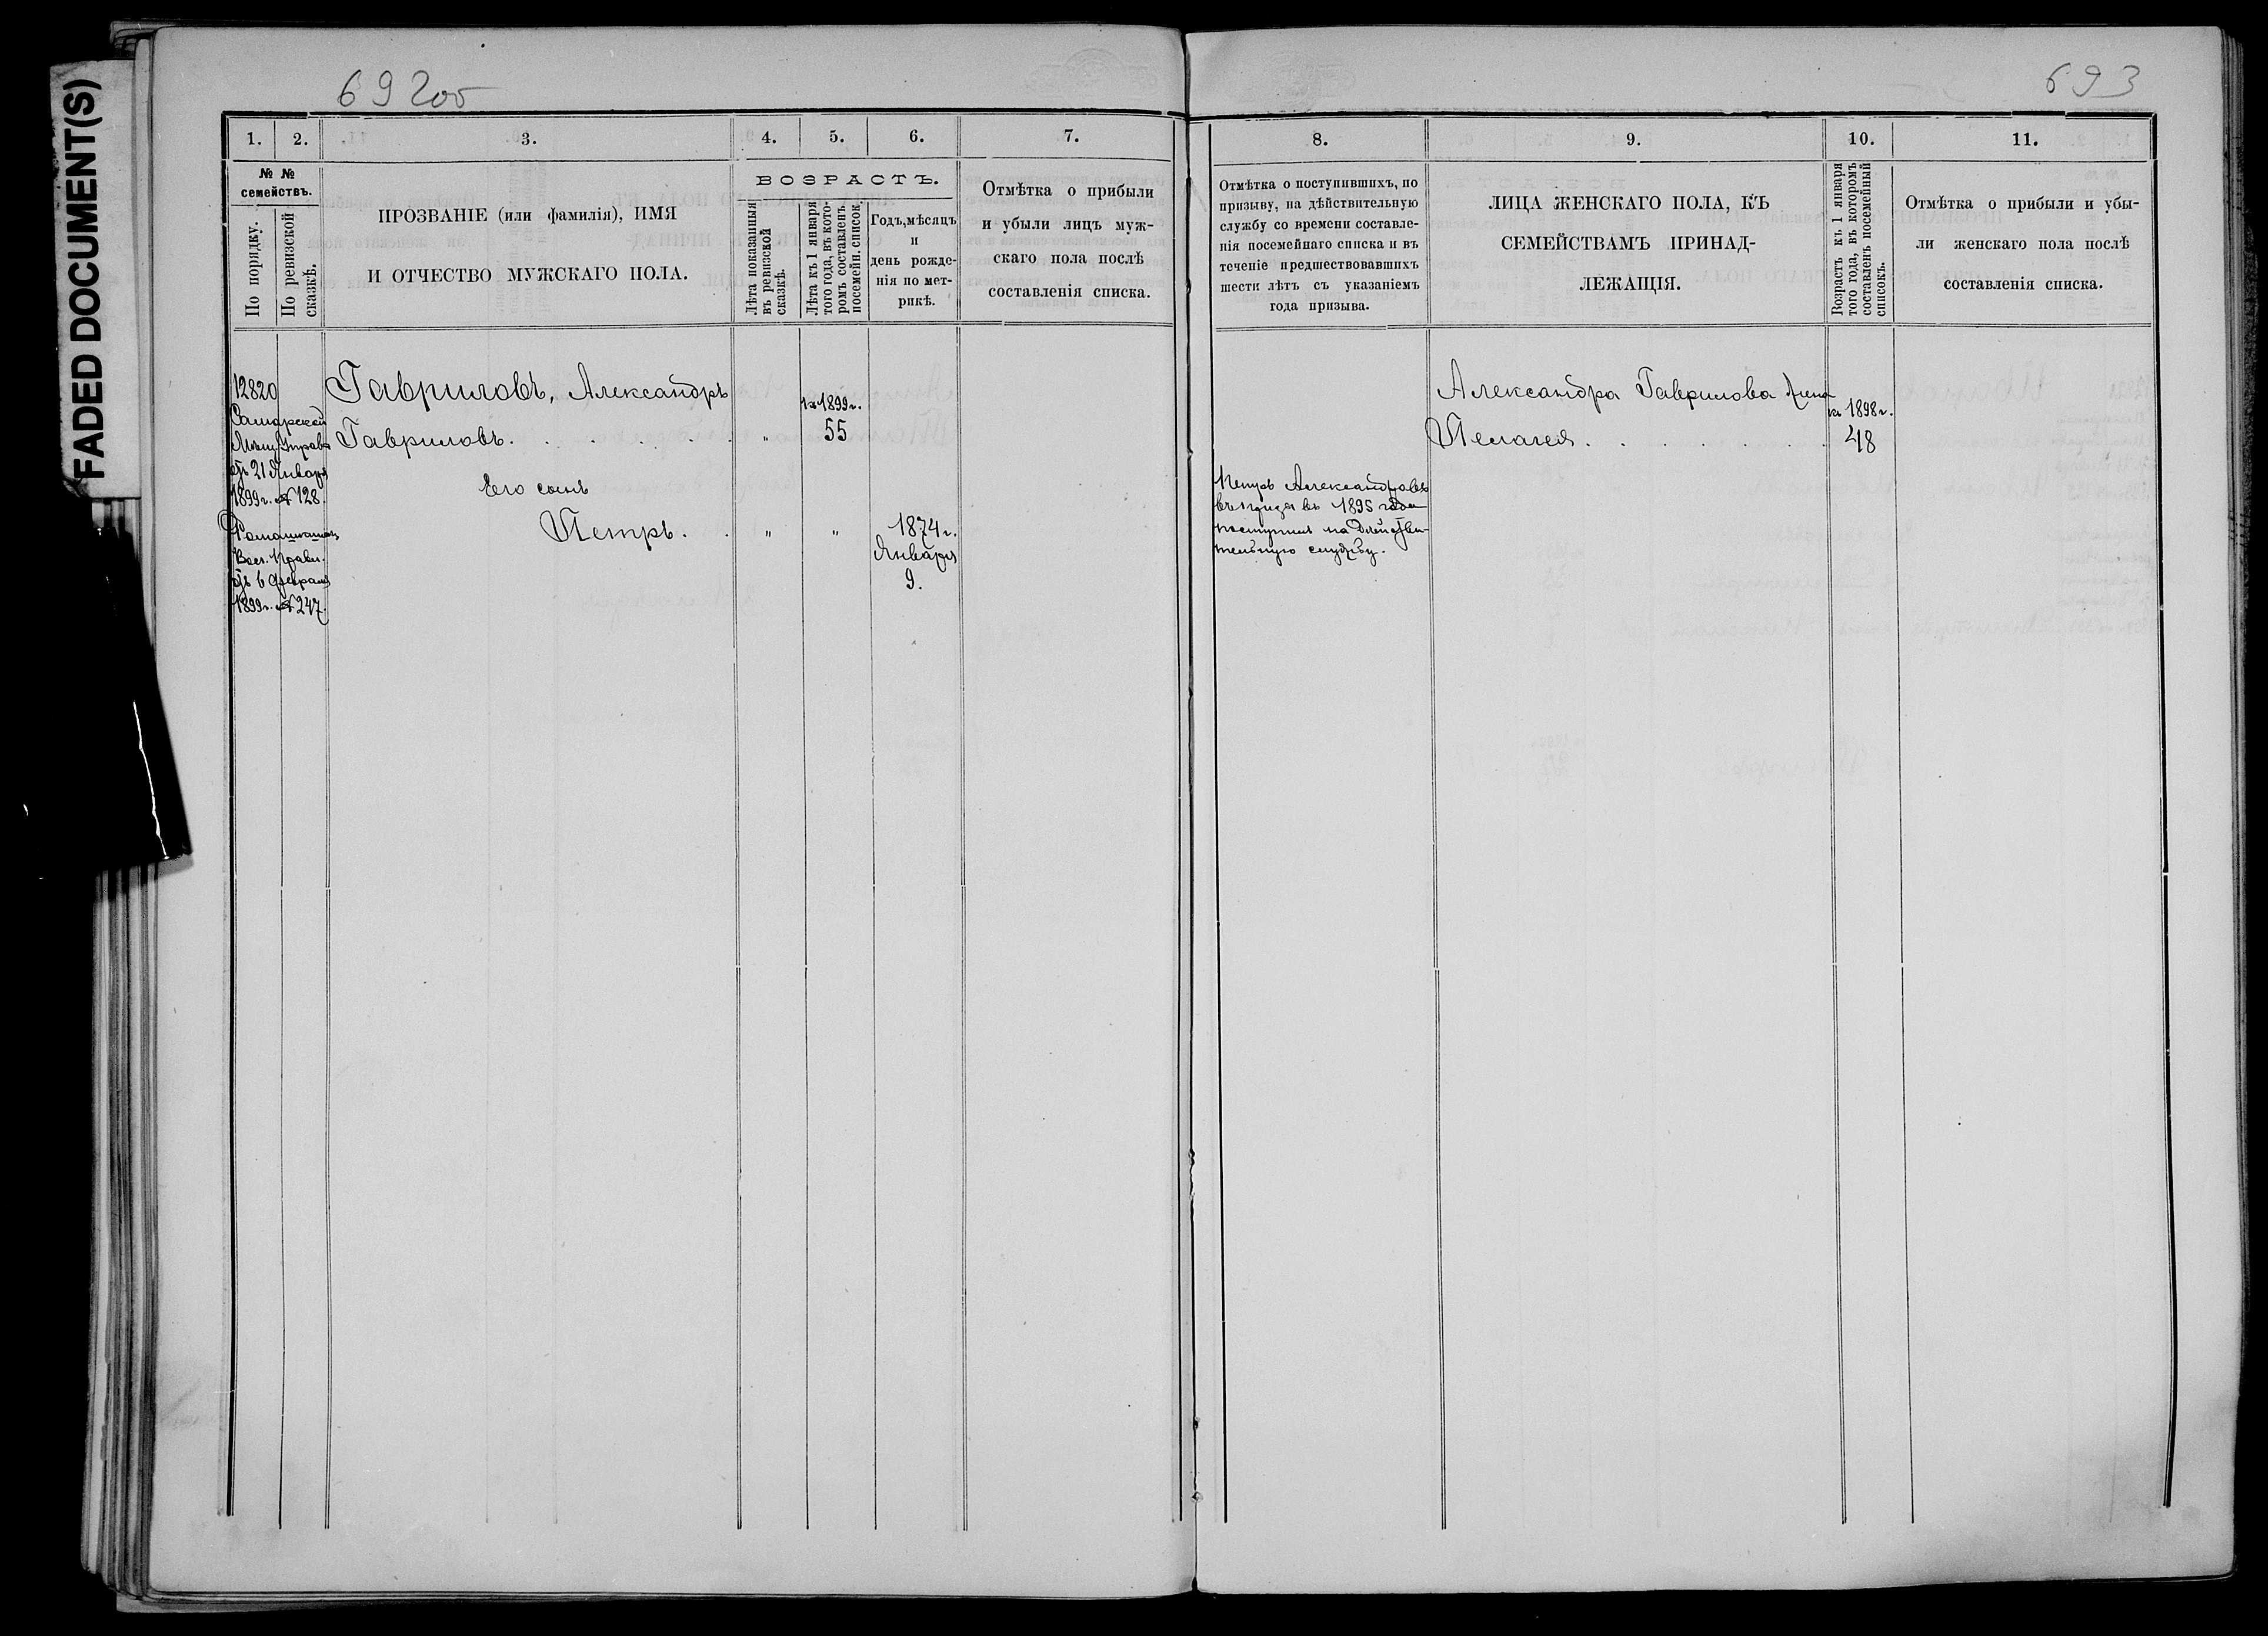 FADED DOCUMENT(S)
692об
693
1. 2. 3. 4. 5. 6. 7.
№ №
семействъ.
По порядку.
По ревизской
сказкѣ.
ПРОЗВАНІЕ (или фамилія), ИМЯ
И ОТЧЕСТВО МУЖСКАГО ПОЛА.
ВОЗРАСТЪ.
Лѣта показанныя
въ ревизской
сказкѣ.
Лѣта къ 1 января
того года, въ кото-
ромъ составленъ
посемейн. список.
Годъ, мѣсяцъ
и
день рожде-
нія по мет-
рикѣ.
Отмѣтка о прибыли
и убыли лицъ муж-
скаго пола послѣ
составленія списка.
12820
Самарской
Мѣщ. Управы
отъ 21 Января
1899 г. № 128.
Вол. Правл.
отъ 6 Февраля
1899 г. № 247.
Гавриловъ, Александръ
Гавриловъ. . . . . . . „
1899 г.
55
Его сынъ
Петръ. . „ „
1874 г.
Января
9.
8. 9. 10. 11.
Отмѣтка о поступившихъ, по
призыву, на дѣйствительную
службу со времени составле-
нія посемейнаго списка и въ
теченіе предшествовавшихъ
шести лѣтъ съ указаніемъ
года призыва.
ЛИЦА ЖЕНСКАГО ПОЛА, КЪ
СЕМЕЙСТВАМЪ ПРИНАД-
ЛЕЖАЩІЯ.
Возрастъ къ 1 января
того года, въ которомъ
составленъ посемейный
списокъ.
Отмѣтка о прибыли и убы-
ли женскаго пола послѣ
составленія списка.
Петръ Александровъ
въ 1895 года
поступилъ на дѣйстви-
тельную службу.
Александра Гаврилова жена
Пелагея. . . . . . .
1898 г.
48